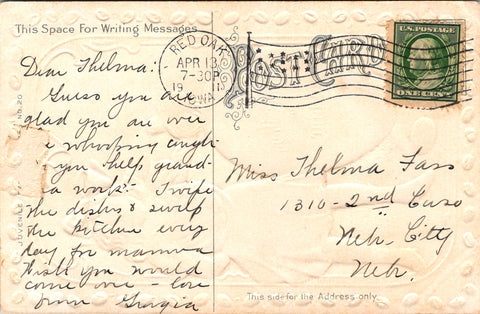 This Space For Writing Messages
Dear Thelma:
Guess you are
glad you are over
e whooping cough
you help grand-
a work? - I wipe
the dishes & sweep
the kitchen every
day for mamma
Wish you would
come over - love
from Georgia
JUVENILE
No. 20
RED OAK
APR 13
7-30P
19
IOWA
POST CARD
U.S. POSTAGE
ONE CENT
Miss Thelma Fass
1310 - 2nd Corso
Nebr. City
Nebr.
This side for the Address only.